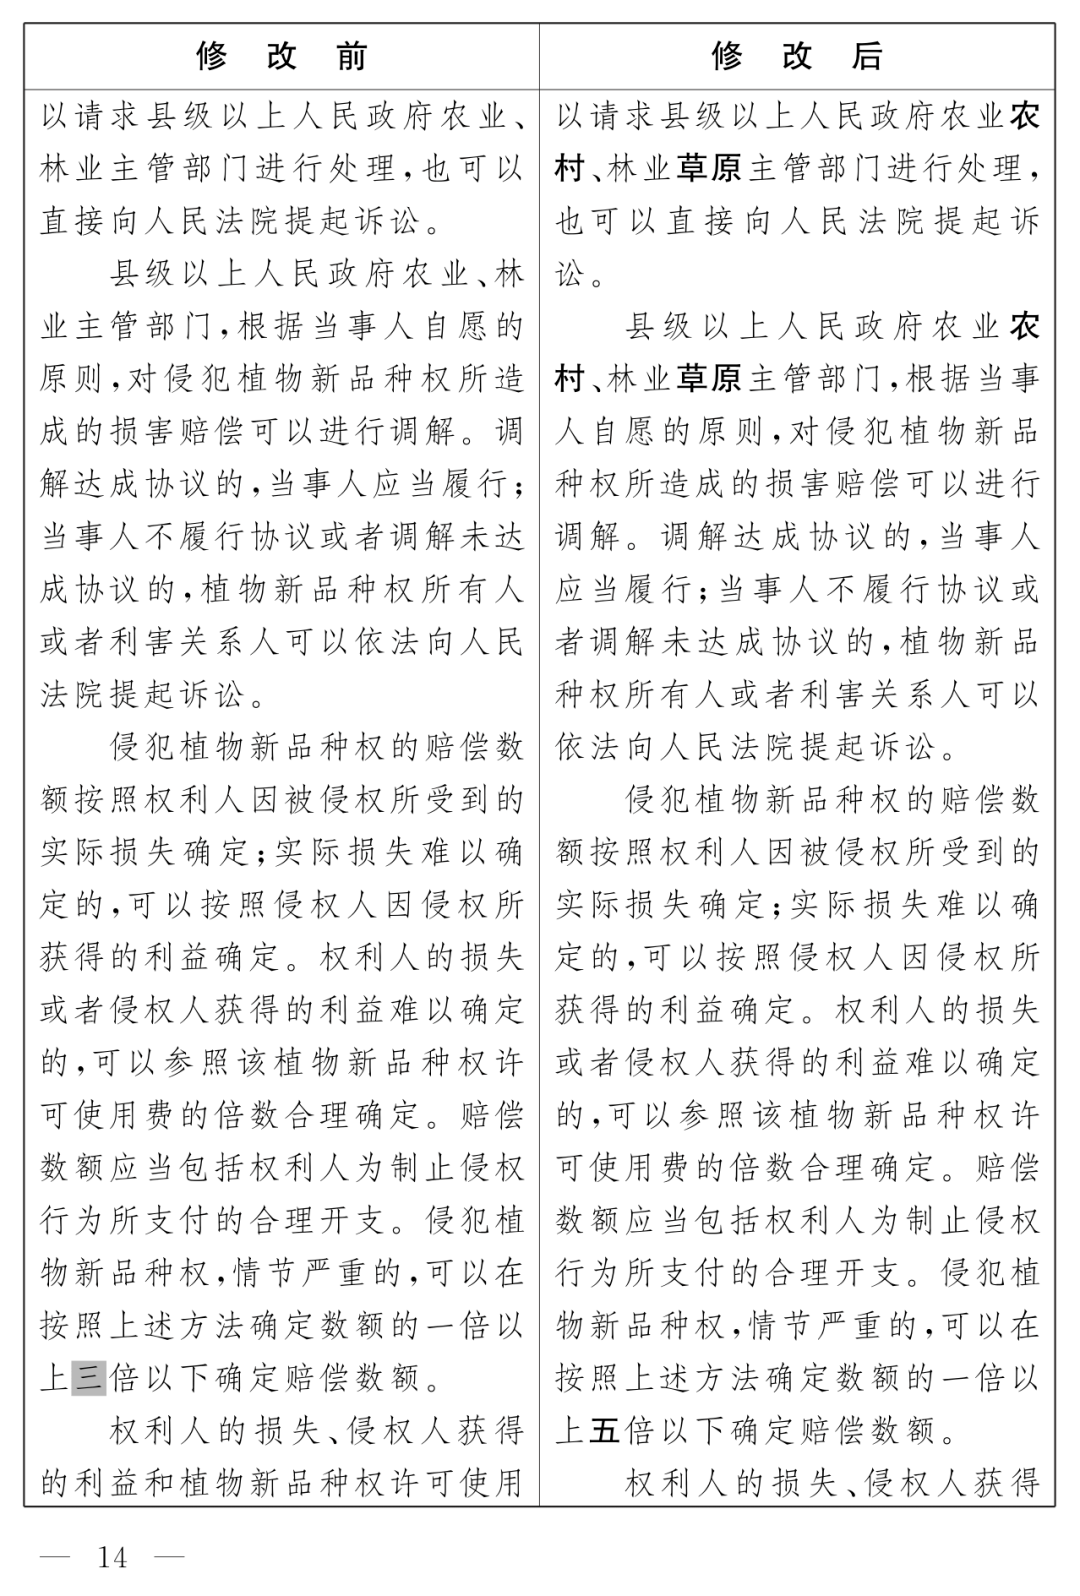 修 改 前
以请求县级以上人民政府农业、
林业主管部门进行处理,也可以
直接向人民法院提起诉讼。
县级以上人民政府农业、林
业主管部门,根据当事人自愿的
原则,对侵犯植物新品种权所造
成的损害赔偿可以进行调解。调
解达成协议的,当事人应当履行;
当事人不履行协议或者调解未达
成协议的,植物新品种权所有人
或者利害关系人可以依法向人民
法院提起诉讼。
侵犯植物新品种权的赔偿数
额按照权利人因被侵权所受到的
实际损失确定;实际损失难以确
定的,可以按照侵权人因侵权所
获得的利益确定。权利人的损失
或者侵权人获得的利益难以确定
的,可以参照该植物新品种权许
可使用费的倍数合理确定。赔偿
数额应当包括权利人为制止侵权
行为所支付的合理开支。侵犯植
物新品种权,情节严重的,可以在
按照上述方法确定数额的一倍以
上三倍以下确定赔偿数额。
权利人的损失、侵权人获得
的利益和植物新品种权许可使用
修 改 后
以请求县级以上人民政府农业农
村、林业草原主管部门进行处理,
也可以直接向人民法院提起诉
讼。
县级以上人民政府农业农
村、林业草原主管部门,根据当事
人自愿的原则,对侵犯植物新品
种权所造成的损害赔偿可以进行
调解。调解达成协议的,当事人
应当履行;当事人不履行协议或
者调解未达成协议的,植物新品
种权所有人或者利害关系人可以
依法向人民法院提起诉讼。
侵犯植物新品种权的赔偿数
额按照权利人因被侵权所受到的
实际损失确定;实际损失难以确
定的,可以按照侵权人因侵权所
获得的利益确定。权利人的损失
或者侵权人获得的利益难以确定
的,可以参照该植物新品种权许
可使用费的倍数合理确定。赔偿
数额应当包括权利人为制止侵权
行为所支付的合理开支。侵犯植
物新品种权,情节严重的,可以在
按照上述方法确定数额的一倍以
上五倍以下确定赔偿数额。
权利人的损失、侵权人获得
— 14 —